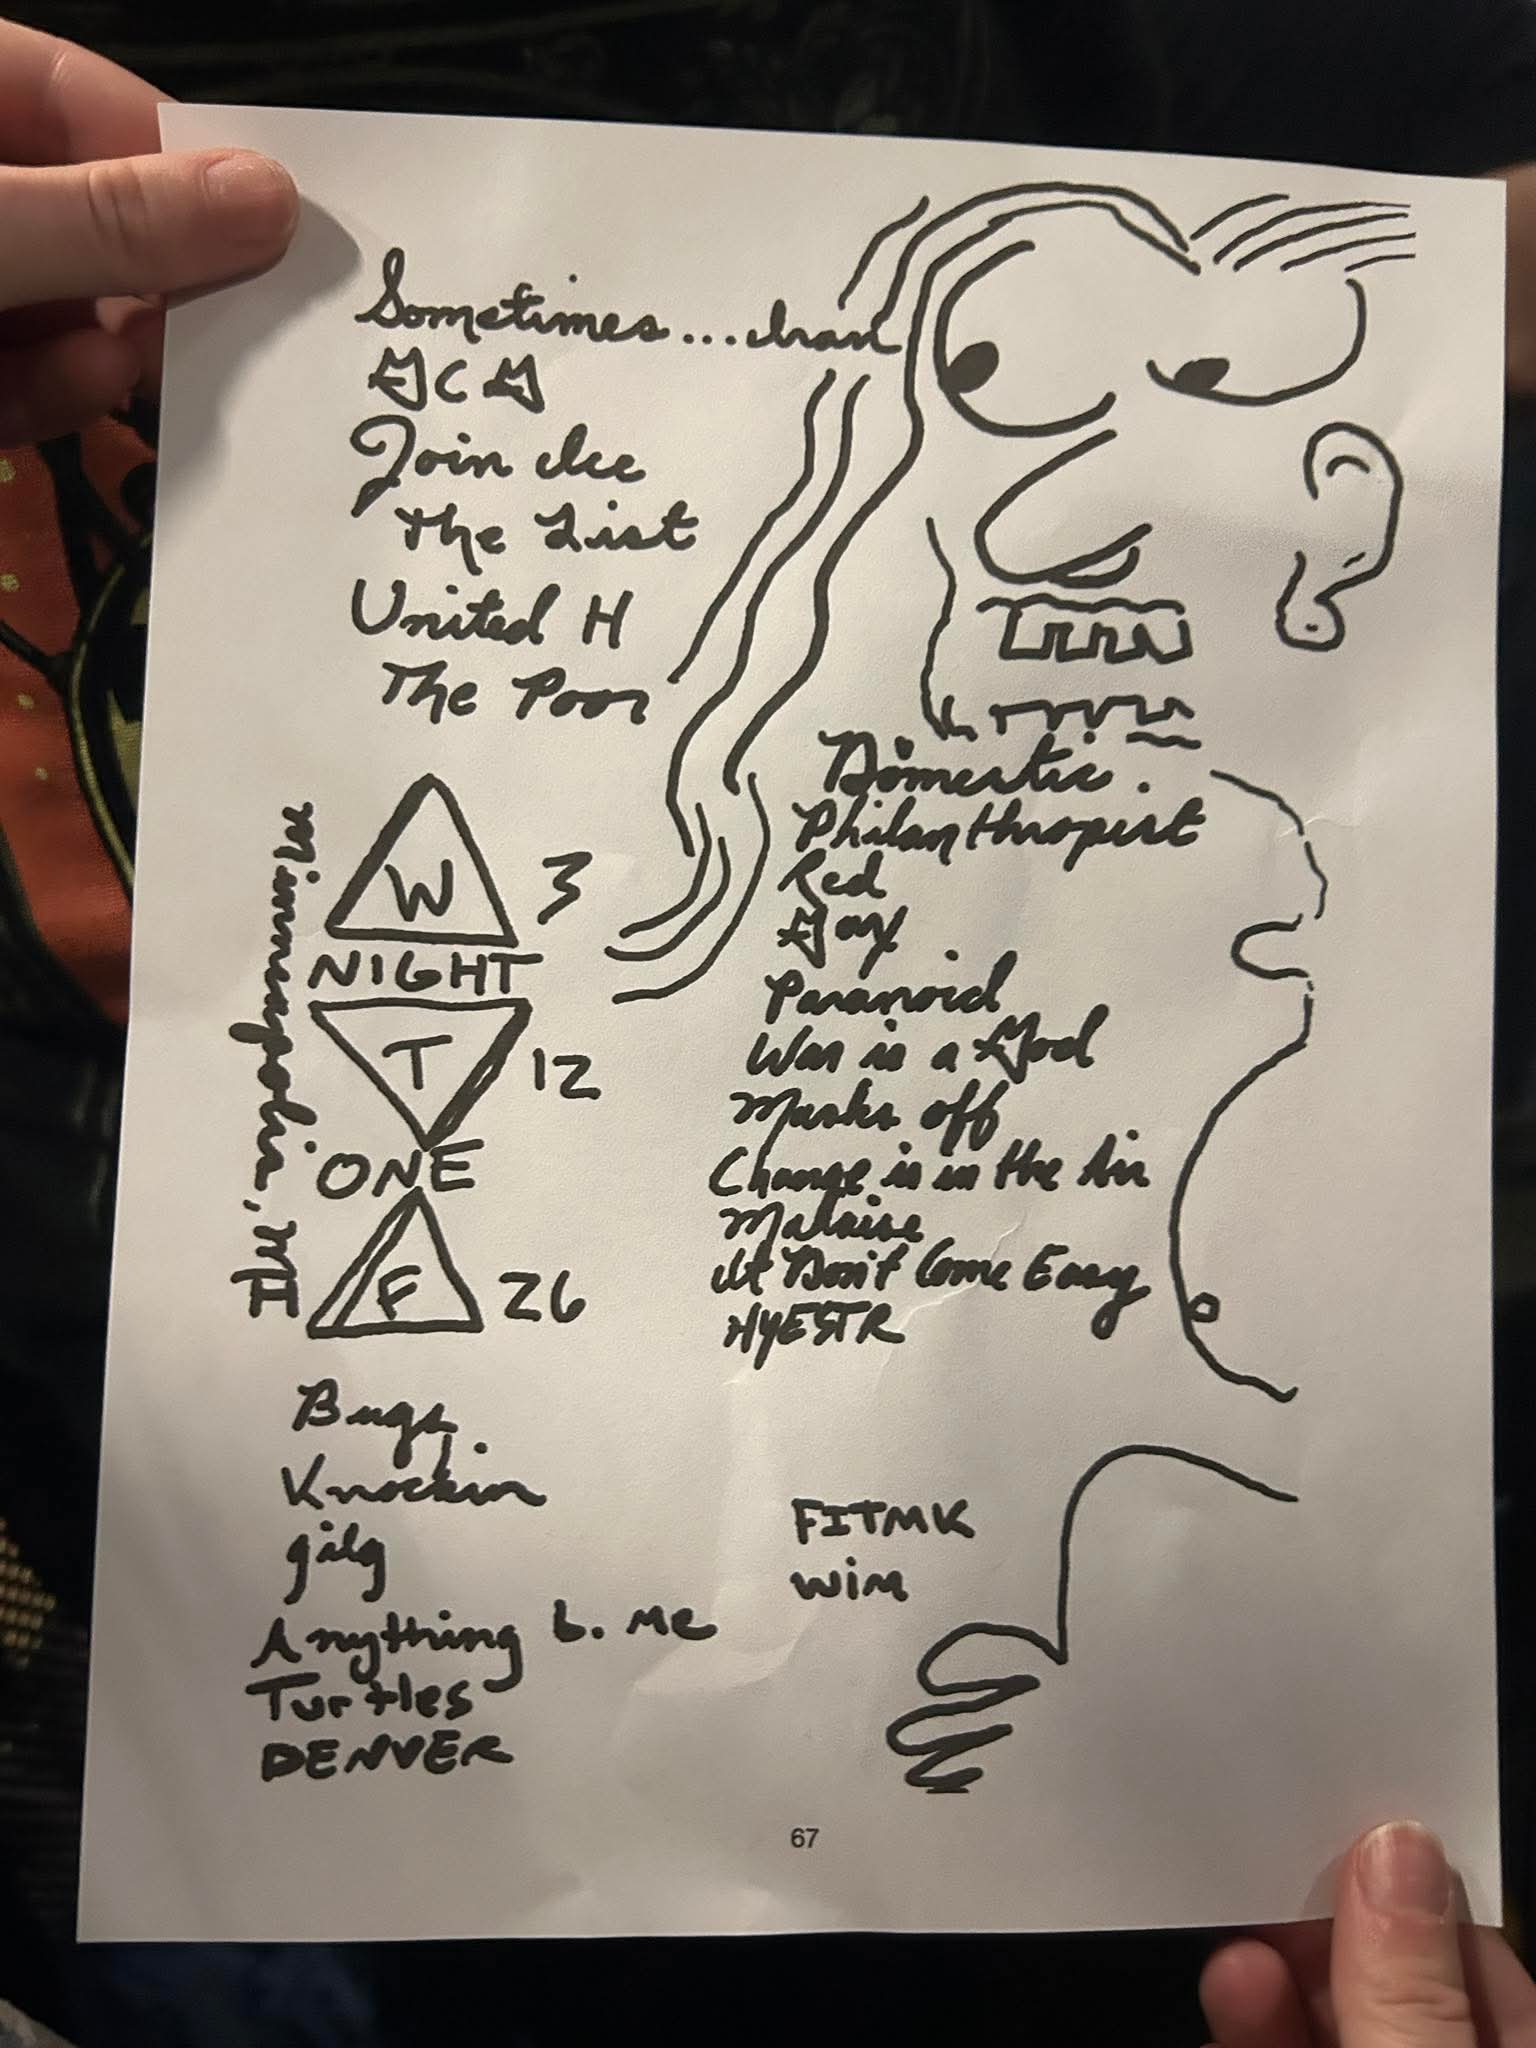 Sometimes... Iran
GCG
Join Ice
The List
United H
The Poor
Minneapolis, MI
W 3
NIGHT
T 12
ONE
F 26
Bugs
Knockin
gilg
Anything b. Me
Turtles
DENVER
Domestic.
Philanthropist
Red
Gay
Paranoid
War is a God
Masks off
Change is in the Air
Malaise
It Don't Come Easy
HYESTR
FITMK
WIM
67